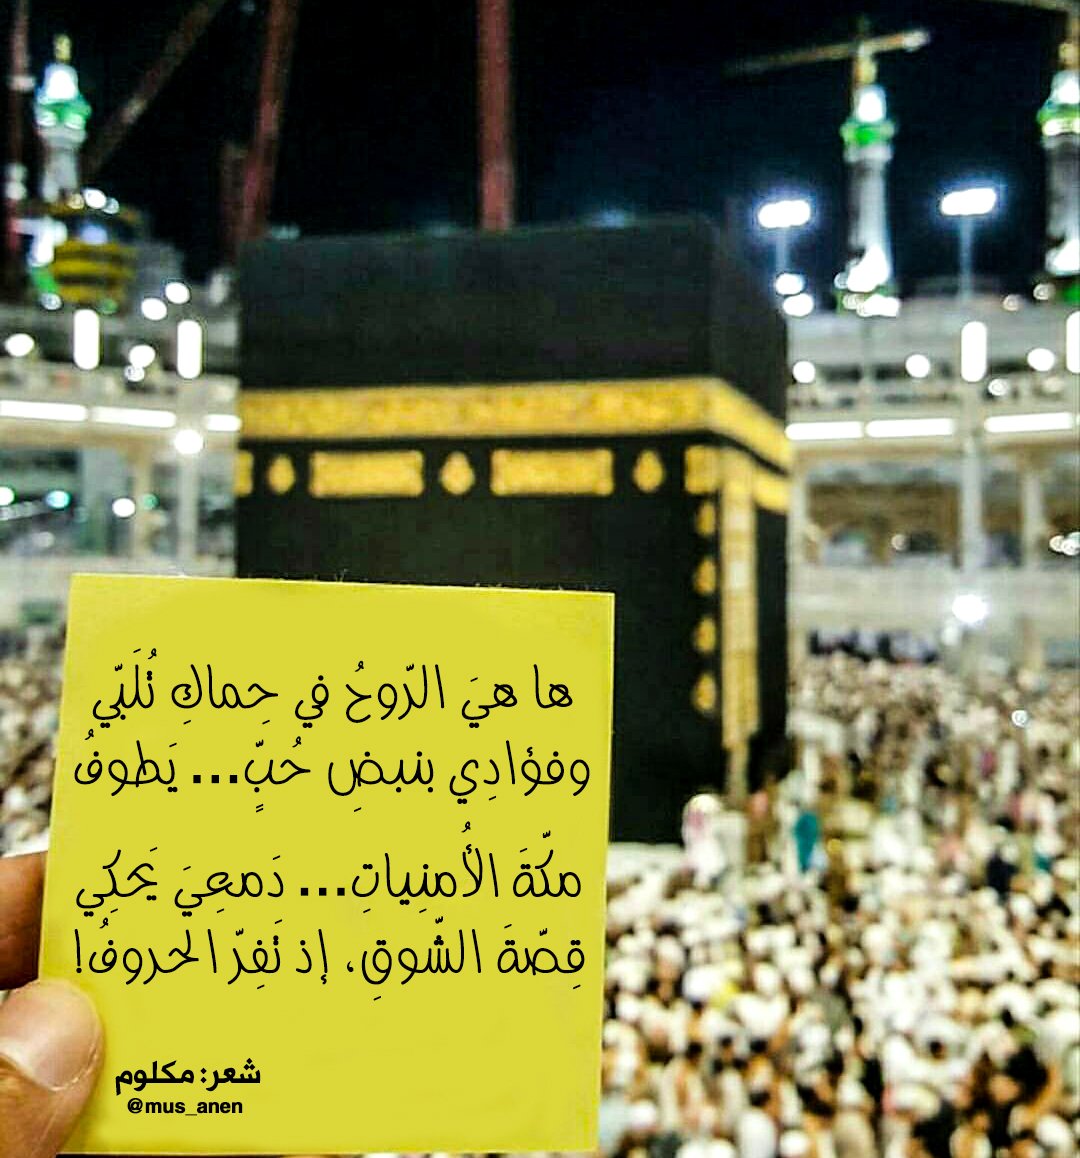 ها هيَ الرّوحُ في حِماكِ تُلَبّي
وفؤادِي بنبضِ حُبٍّ... يَطوفُ
مكّةَ الأُمنِياتِ... دَمعِيَ يَحكِي
قِصّةَ الشّوقِ، إذ تَفِرّ الحروفُ!
شعر: مكلوم
@mus_anen